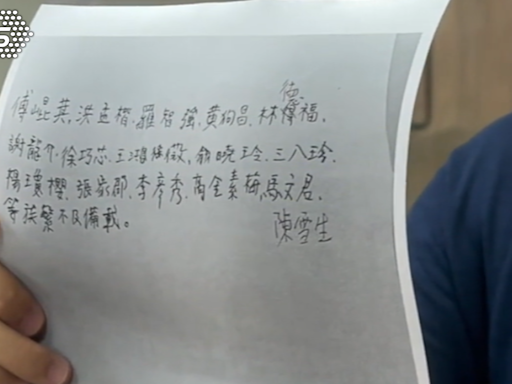 德
傅崐萁, 洪孟楷, 羅智強, 黃昌, 林福,
謝龍介, 徐巧芯, 王鴻薇, 翁曉玲, 三八玲,
楊瓊櫻, 張嘉郡, 李彥秀, 高金素梅, 馬文君,
等族繁不及備載。
陳雪生